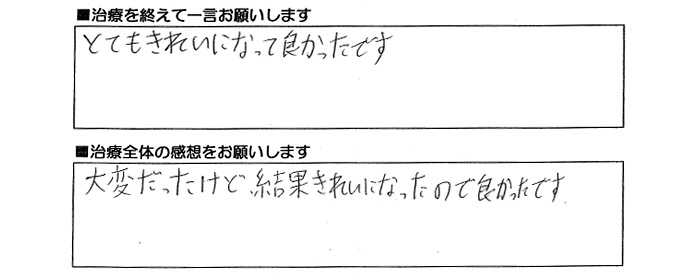 ■治療を終えて一言お願いします
とてもきれいになって良かったです
■治療全体の感想をお願いします
大変だったけど、結果きれいになったので良かったです